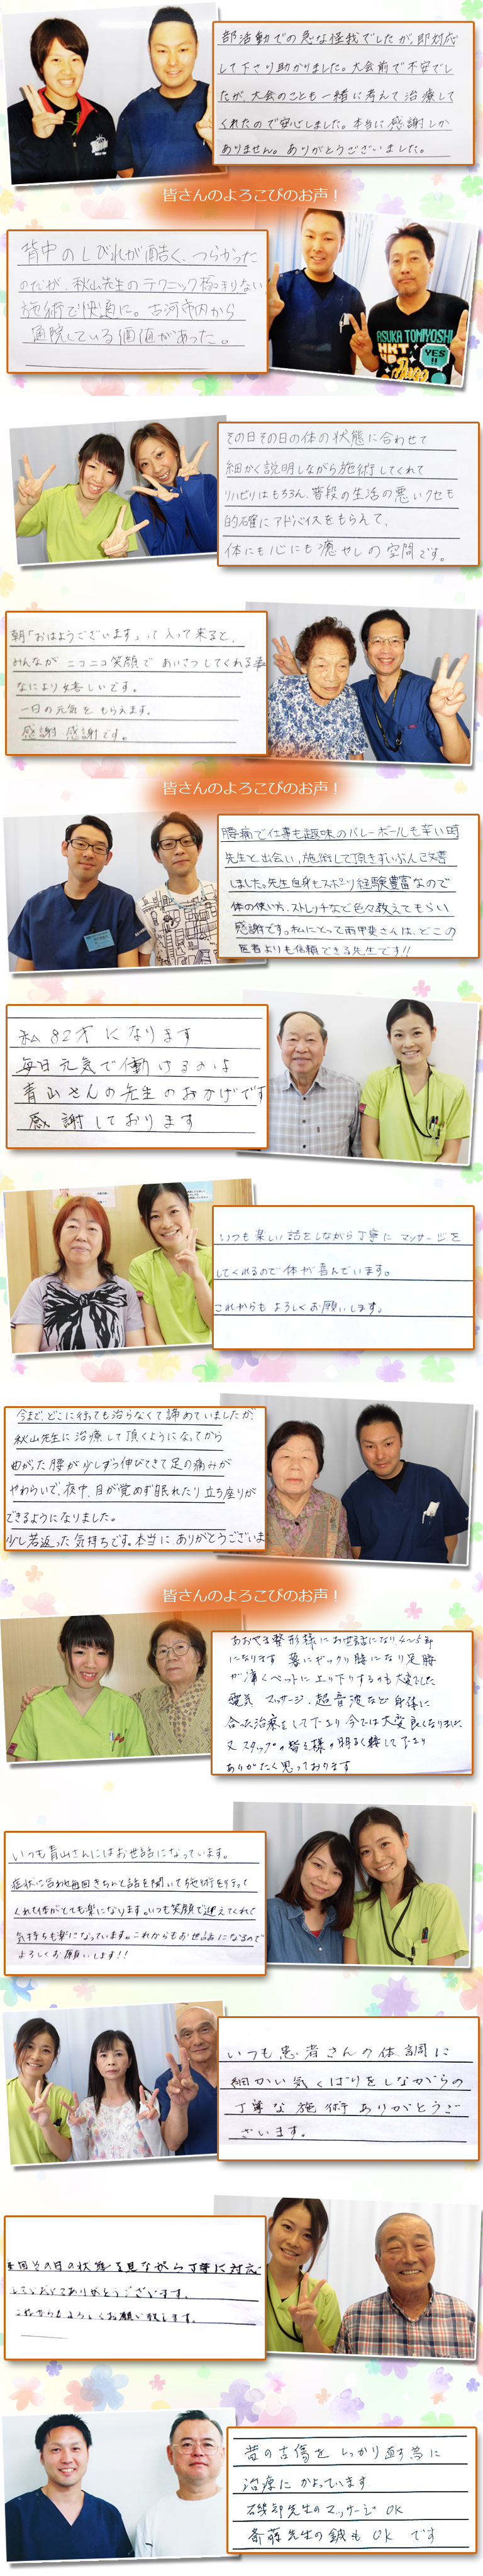 部活動での急な怪我でしたが、即対応
して下さり助かりました。大会前で不安でし
たが、大会のことも一緒に考えて治療して
くれたので安心しました。本当に感謝しか
ありません。ありがとうございました。
皆さんのよろこびのお声！
背中のしびれが酷く、つらかった
のだが、秋山先生のテクニック極まりない
施術で快適に。古河市内から
通院している価値があった。
ASUKA TOMIYOSHI
HKT
YES!!
その日その日の体の状態に合わせて
細かく説明しながら施術してくれて
リハビリはもちろん、普段の生活の悪いクセも
的確にアドバイスをもらえて、
体にも心にも癒やしの空間です。
朝「おはようございます」って入って来ると、
みんながニコニコ笑顔であいさつしてくれる事
なにより嬉しいです。
一日の元気をもらえます。
感謝感謝です。
皆さんのよろこびのお声！
腰痛で仕事も趣味のバレーボールも辛い時
先生と出会い、施術して頂きずいぶん改善
しました。先生自身もスポーツ経験豊富なので
体の使い方、ストレッチなど色々教えてもらい
感謝です。私にとって雨甲斐さんは、どこの
医者よりも信頼できる先生です!!
私82才になります
毎日元気で働けるのは
青山さんの先生のおかげです
感謝しております
いつも楽しい話をしながら丁寧にマッサージを
してくれるので体が喜んでいます。
これからもよろしくお願いします。
今まで、どこに行っても治らなくて諦めていましたが、
秋山先生に治療して頂くようになってから
曲がった腰が少しずつ伸びてきて足の痛みが
やわらいで、夜中、目が覚めず眠れたり立ち座りが
できるようになりました。
少し若返った気持ちです。本当にありがとうございま
皆さんのよろこびのお声！
あおやま整形様にお世話になり4〜5年
になります 幕にギックリ腰になり足腰
が凄くベットに上り下りするのも大変でした
電気 マッサージ、超音波など身体に
合った治療をして下さり今では大変良くなりました
又スタッフの皆々様の明るく接して下さり
ありがたく思っております
いつも青山さんにはお世話になっています。
症状に合わせ毎回きちんと話を聞いて施術を行って
くれて体がとても楽になります。いつも笑顔で迎えてくれて
気持ちも楽になっています。これからもお世話になるので
よろしくお願いします!!
いつも患者さんの体調に
細かい気くばりをしながらの
丁寧な施術ありがとうご
ざいます。
毎回その日の状態を見ながら丁寧に対応
していただいてありがとうございます。
これからもよろしくお願い致します。
昔の古傷をしっかり直す為に
治療にかよっています
磯部先生のマッサージOK
斎藤先生の鍼もOKです